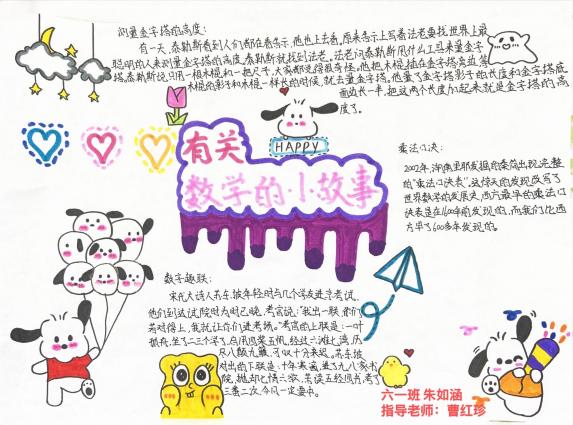 测量金字塔的高度：
有一天，泰勒斯看到人们都在看告示，他也上去看。原来告示上写着法老要找世界上最
聪明的人来测量金字塔的高度，泰勒斯就找到法老。法老问泰勒斯用什么工具来量金字
塔，泰勒斯说只用一根木棍和一把尺子，
木棍的影子和木棍一样长的时候，就去量金字塔。他量了金字塔影子的长度和金字塔底
面边长一半，把这两个长度加起来就是金字塔的高
度了。
HAPPY
有关
数学的小故事
乘法口诀：
2002年，湖南里耶发掘的秦简出现完整
的"乘法口诀表"。这惊天的发现改写了
世界数学的发展史，西方最早的乘法口
诀表是在1600年前发现的，而我们比西
方早了600多年发现的。
数字趣联：
宋代大诗人苏东坡年轻时与几个学友进京考试。
他们到达试院时为时已晚。考官说："我出一联，你们
若对得上，我就让你们进考场。"考官的上联是：一叶
孤舟，坐了二三个学子，启用四桨五帆，经过六滩七湾，历
尽八颠九簸，可叹十分来迟。苏东坡
对出的下联是：十年寒窗，进了九八家书
院，抛却七情六欲，苦读五经四书，考了
三番二次，今日一定要中。
六一班 朱如涵
指导老师：曹红珍